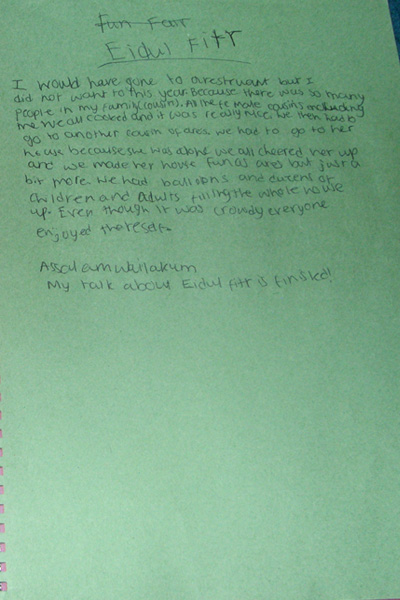 Fun Fear
Eidul Fitr
I would have gone to a resteruant but I
did not want to this year. Because there was so many
people in my family (cousins). All the female cousins including
me we all cooked and it was really nice. We then had to
go to another cousin of ares. we had to go to her
house because she was alone we all cheered her up
and we made her house fun as ares but just a
bit more. We had balloons and of
children and adults filling the whole house
up. Even though it was crowdy everyone
enjoyed thereself.
Assalamwallakum
My talk about Eidul fitr is finished!